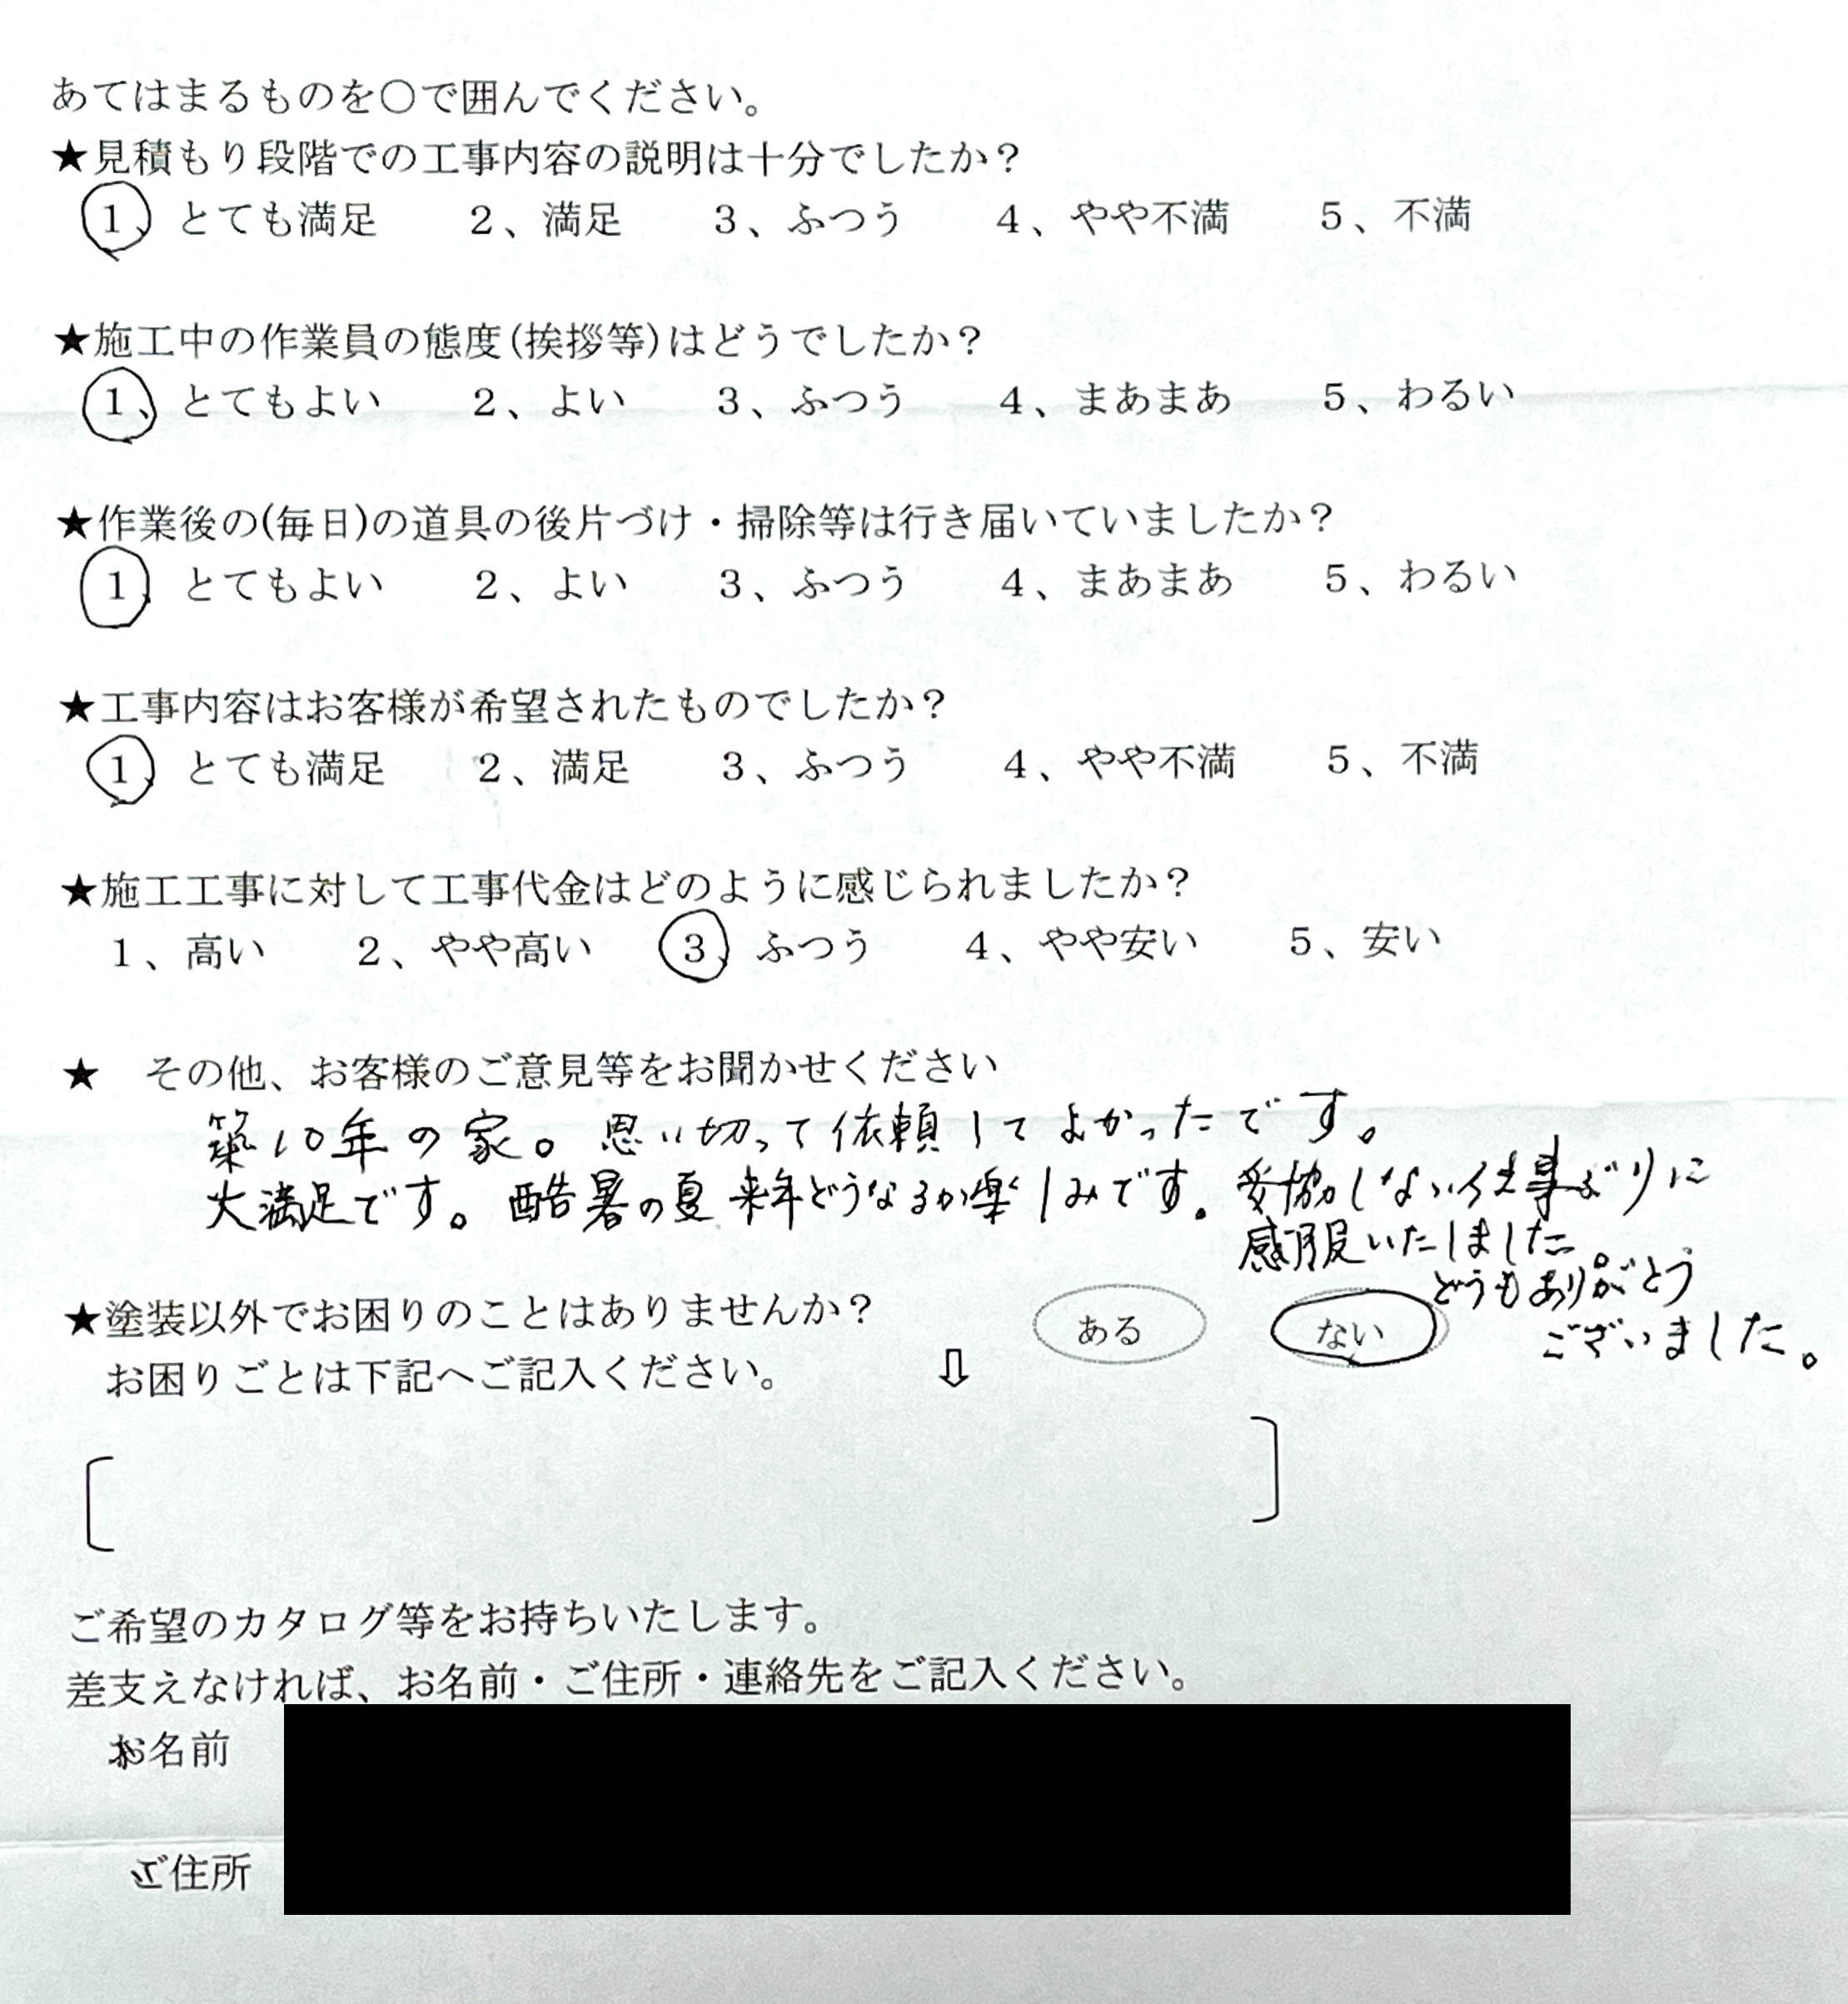 あてはまるものを○で囲んでください。
★見積もり段階での工事内容の説明は十分でしたか？
1、とても満足　2、満足　3、ふつう　4、やや不満　5、不満
★施工中の作業員の態度(挨拶等)はどうでしたか？
1、とてもよい　2、よい　3、ふつう　4、まあまあ　5、わるい
★作業後の(毎日)の道具の後片づけ・掃除等は行き届いていましたか？
1、とてもよい　2、よい　3、ふつう　4、まあまあ　5、わるい
★工事内容はお客様が希望されたものでしたか？
1、とても満足　2、満足　3、ふつう　4、やや不満　5、不満
★施工工事に対して工事代金はどのように感じられましたか？
1、高い　2、やや高い　3、ふつう　4、やや安い　5、安い
★　その他、お客様のご意見等をお聞かせください
築10年の家。思い切って依頼してよかったです。
大満足です。酷暑の夏 来年どうなるか楽しみです。妥協しない仕事ぶりに
感服いたしました。
どうもありがとう
ございました。
★塗装以外でお困りのことはありませんか？　ある　ない
お困りごとは下記へご記入ください。　⇩
ご希望のカタログ等をお持ちいたします。
差支えなければ、お名前・ご住所・連絡先をご記入ください。
お名前
ご住所